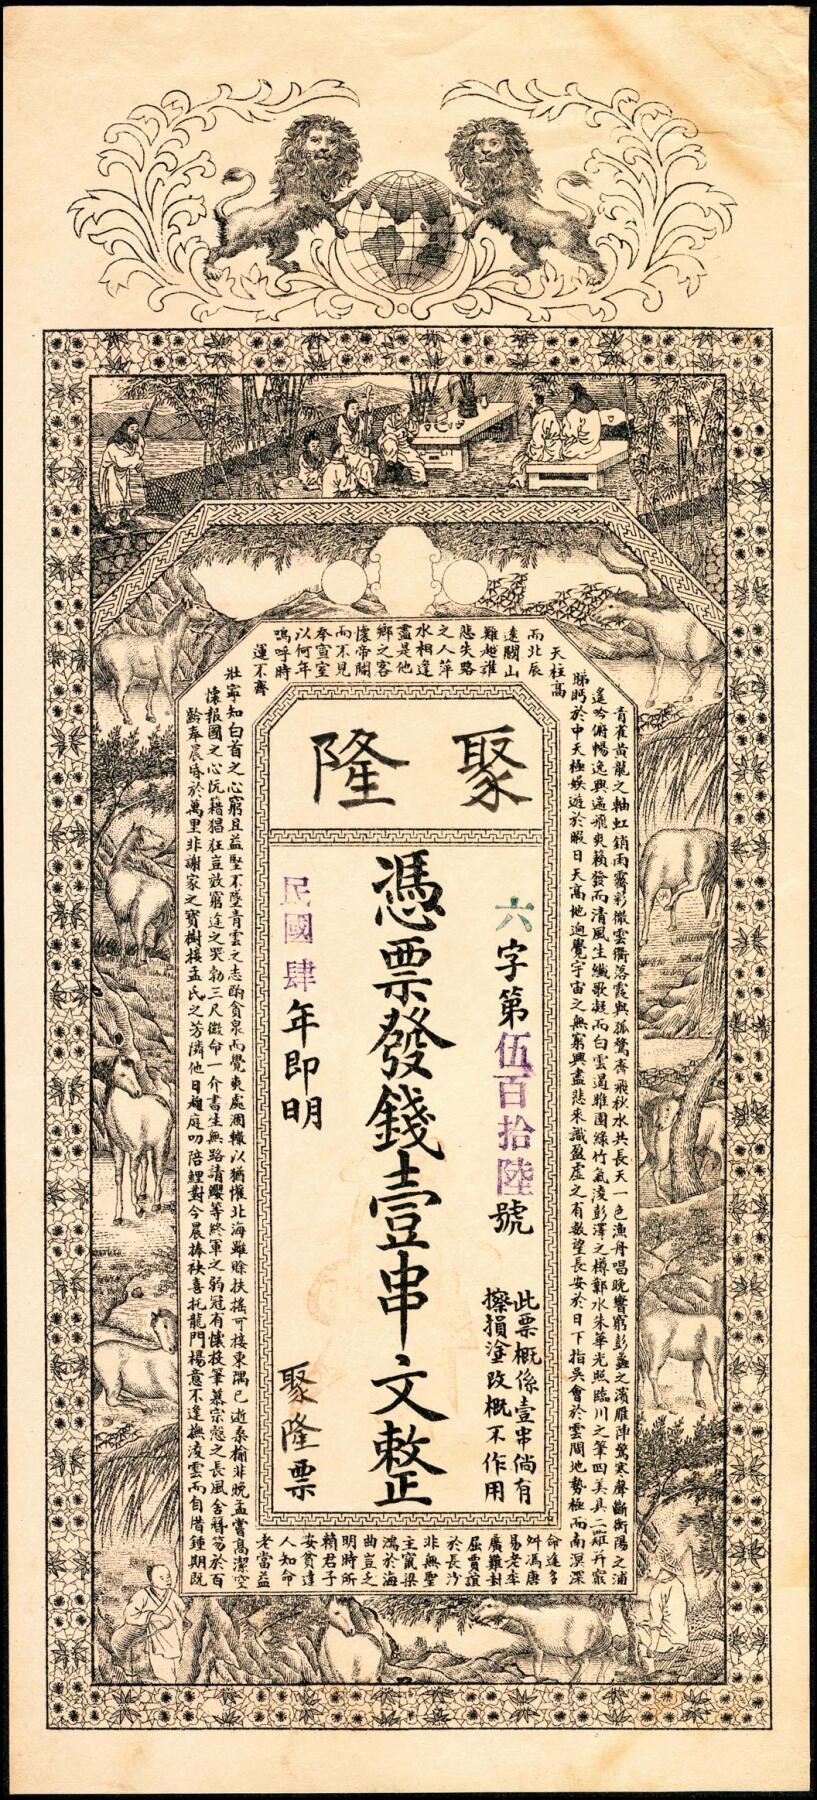 聚隆
六字第伍百拾陸號
此票概係壹串倘有
擦損塗改概不作用
憑票發錢壹串文整
民國肆年即明
聚隆票
青雀黃龍之軸虹銷雨霽彩徹雲衢落霞與孤鶩齊飛秋水共長天一色漁舟唱晚響窮彭蠡之濱雁陣驚寒聲斷衡陽之浦
遙吟俯暢逸興遄飛爽籟發而清風生纖歌凝而白雲遏雎園綠竹氣淩彭澤之樽鄴水朱華光照臨川之筆四美具二難幷窮
睇眄於中天極娛遊於暇日天高地迥覺宇宙之無窮興盡悲來識盈虛之有數望長安於日下指吳會於雲間地勢極而南溟深
天柱高
而北辰
遠關山
難越誰
悲失路
之人萍
水相逢
盡是他
鄉之客
懷帝閽
而不見
奉宣室
以何年
嗚呼時
運不齊
命途多
舛馮唐
易老李
廣難封
屈賈誼
於長沙
非無聖
主竄梁
鴻於海
曲豈乏
明時所
賴君子
安貧達
人知命
老當益
壯寧知白首之心窮且益堅不墜青雲之志酌貪泉而覺爽處涸轍以猶懽北海雖賒扶搖可接東隅已逝桑榆非晚孟嘗高潔空
懷報國之心阮籍猖狂豈效窮途之哭勃三尺微命一介書生無路請纓等終軍之弱冠有懷投筆慕宗慤之長風舍簪笏於百
齡奉晨昏於萬里非謝家之寶樹接孟氏之芳隣他日趨庭叨陪鯉對今晨捧袂喜托龍門楊意不逢撫淩雲而自惜鍾期既